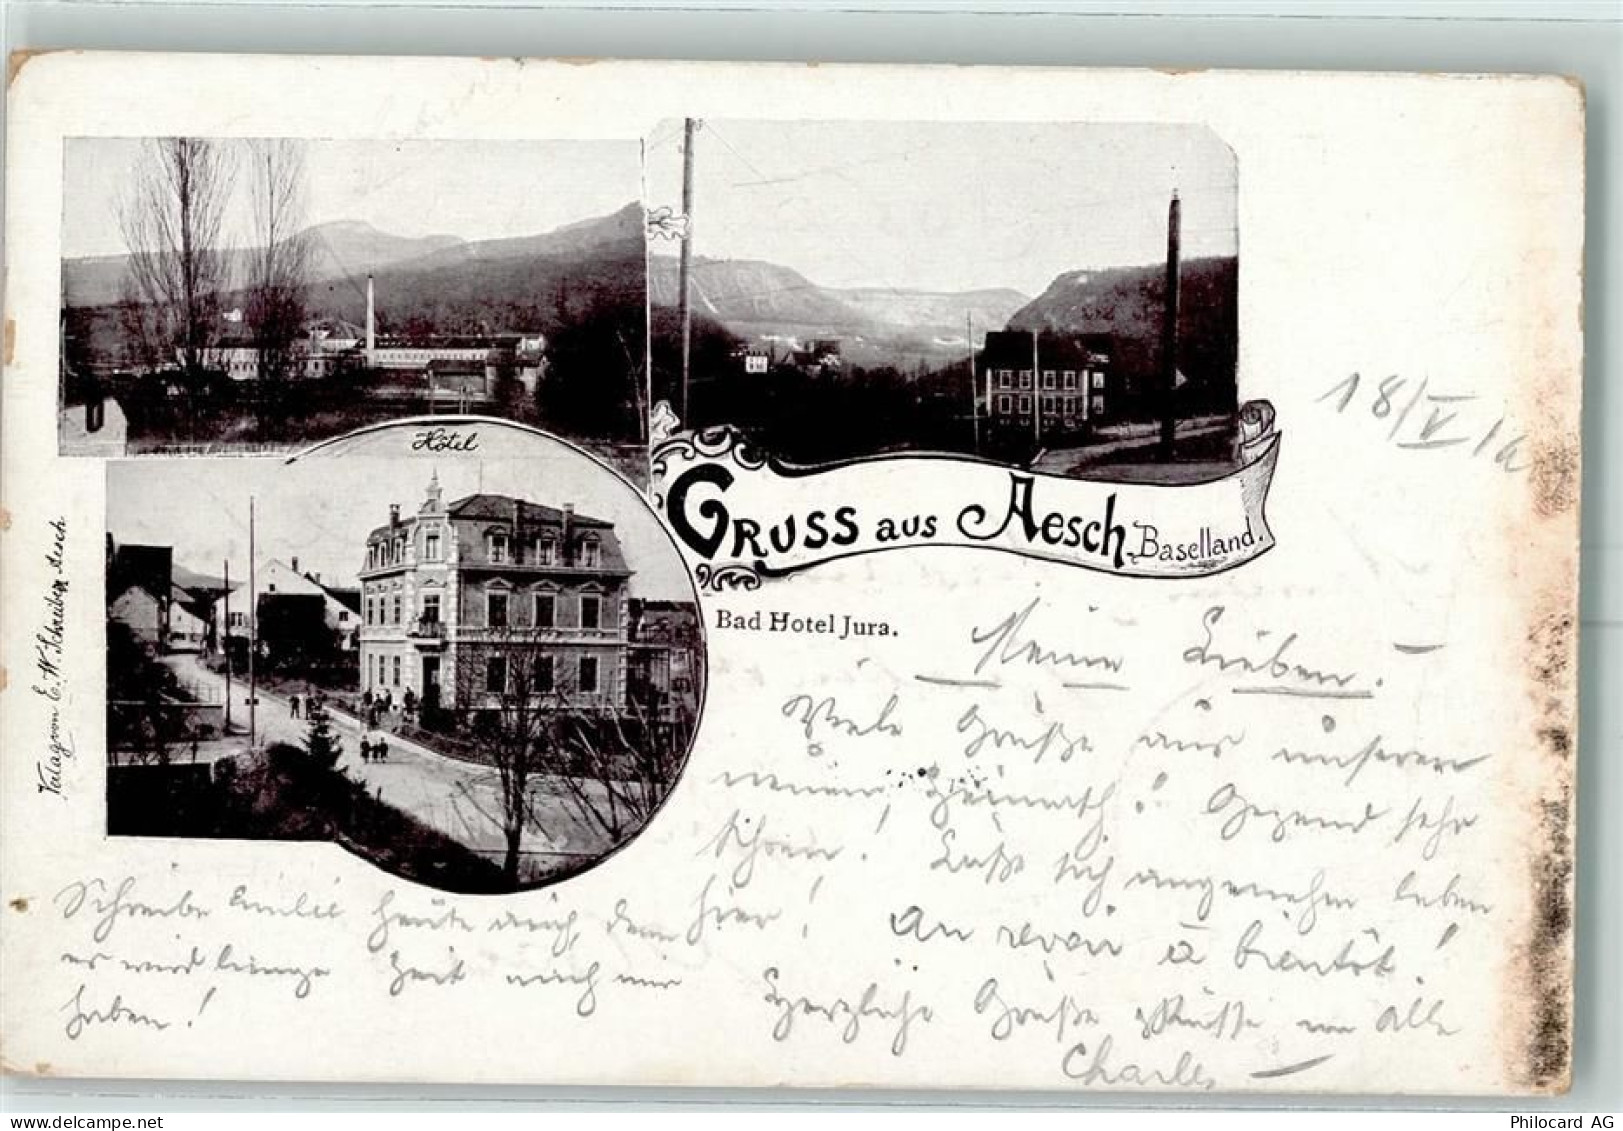 Hôtel
Gruss aus Aesch, Baselland.
Bad Hotel Jura.
Verlag von E. W. Schreiber, Aesch.
18/V
Meine Lieben. –
Viele Grüße aus unserer
neuen Heimath! Gegend sehr
schön! Läßt sich angenehm leben
hier! Au revoir à bientôt!
Herzliche Grüße & Küsse an alle
Charles –
Schreibe Emilie heute auch, denn
es wird lange Zeit nach mir
haben!
Philocard AG